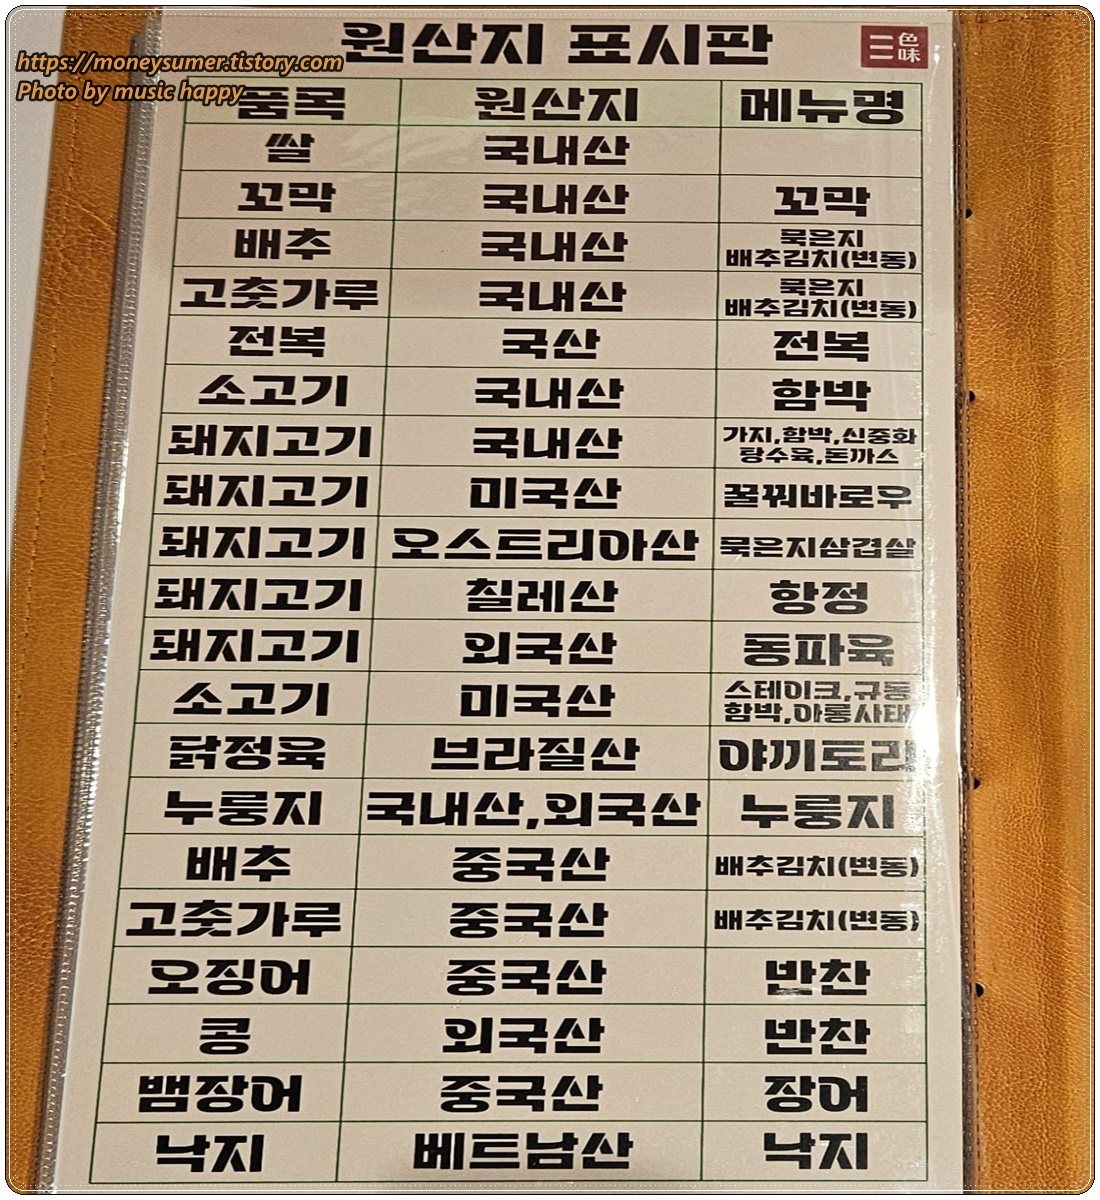 원산지 표시판
三色味
https://moneysumer.tistory.com
Photo by music happy
품목 원산지 메뉴명
쌀 국내산
꼬막 국내산 꼬막
배추 국내산 묵은지
배추김치(변동)
고춧가루 국내산 묵은지
배추김치(변동)
전복 국산 전복
소고기 국내산 함박
돼지고기 국내산 가지,함박,신중화
탕수육,돈까스
돼지고기 미국산 꿀꿔바로우
돼지고기 오스트리아산 묵은지삼겹살
돼지고기 칠레산 항정
돼지고기 외국산 동파육
소고기 미국산 스테이크,규동
함박,아롱사태
닭정육 브라질산 야끼토리
누룽지 국내산,외국산 누룽지
배추 중국산 배추김치(변동)
고춧가루 중국산 배추김치(변동)
오징어 중국산 반찬
콩 외국산 반찬
뱀장어 중국산 장어
낙지 베트남산 낙지